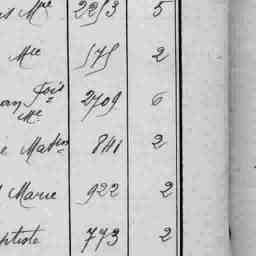 Mie 2253 5
Mie 575 2
Fois Mie 2709 6
e Mathu 841 2
Marie 922 2
ptiste 773 2